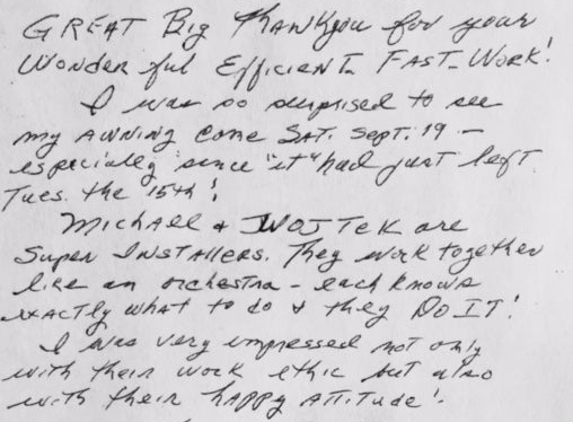 GREAT Big Thankyou for your
Wonderful Efficient Fast-Work!
I was so surprised to see
my AWNING come SAT. Sept. 19 –
especially since "it" had just left
Tues. the 15th!
Michael & WOJTEK are
Super INSTALLERS. They work together
like an orchestra – each knows
exactly what to do & they DO IT!
I was very impressed not only
with their work ethic but also
with their happy attitude!